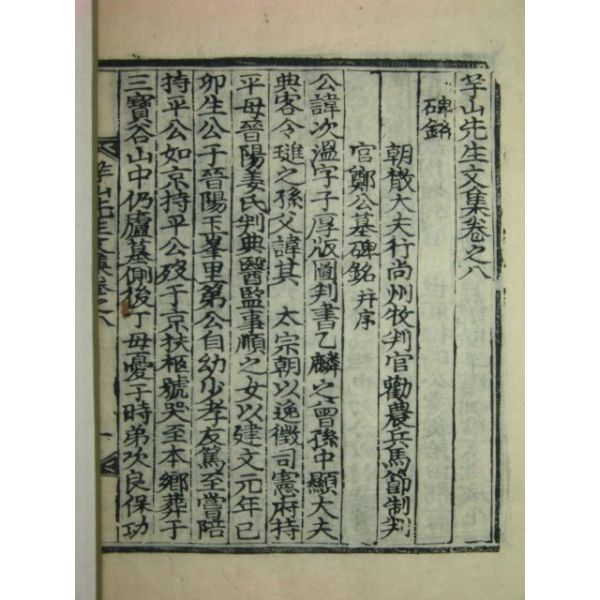 竽山先生文集卷之八
碑銘
朝散大夫行尚州牧判官勸農兵馬節制判
官鄭公墓碑銘 并序
公諱次溫字子厚版圖判書乙麟之曾孫中顯大夫
典客令璡之孫父諱其 太宗朝以逸徵司憲府持
平母晉陽姜氏判典醫監事順之女以建文元年己
卯生公于晉陽玉峯里第公自幼少孝友篤至嘗陪
持平公如京持平公歿于京扶柩號哭至本鄉葬于
三寶谷山中仍廬墓側後丁母憂于時弟次良保功
竽山先生文集卷之八 一